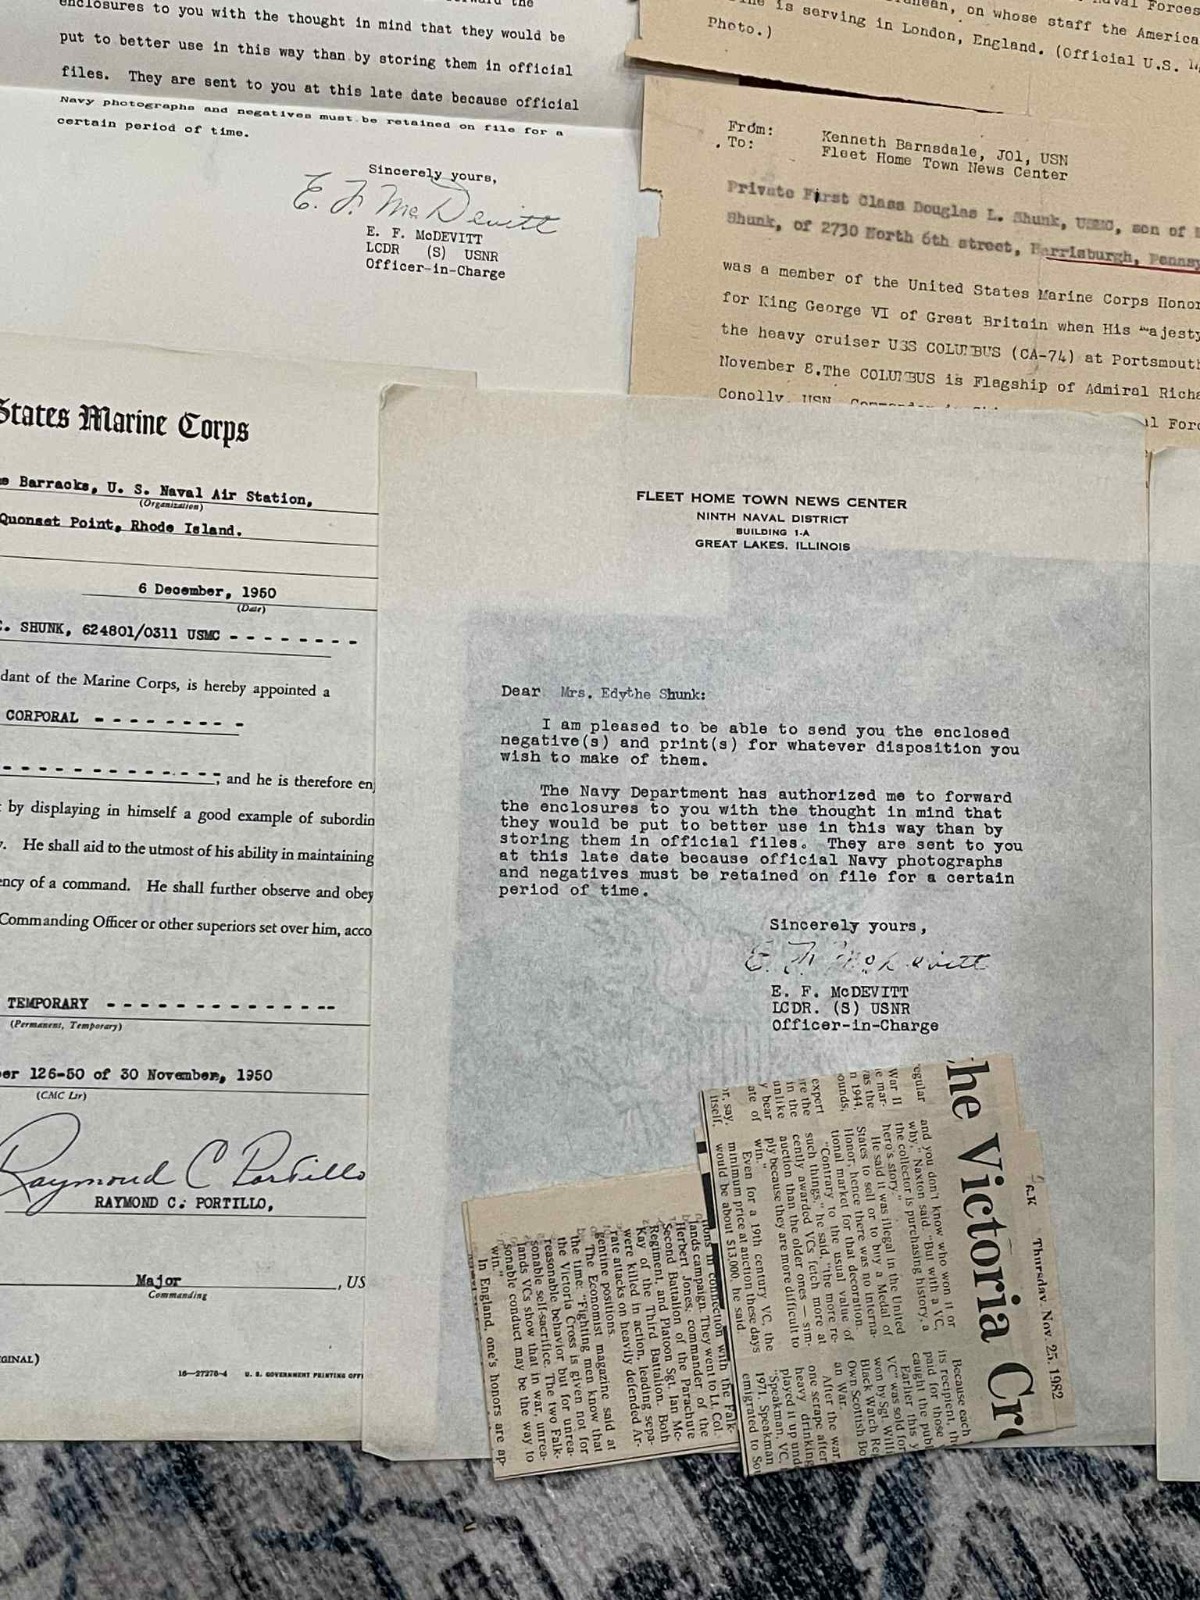 enclosures to you with the thought in mind that they would be
put to better use in this way than by storing them in official
files. They are sent to you at this late date because official
Navy photographs and negatives must be retained on file for a
certain period of time.
Sincerely yours,
E. F. McDevitt
E. F. McDEVITT
LCDR (S) USNR
Officer-in-Charge
on whose staff the America
is serving in London, England. (Official U.S.
Photo.)
From: Kenneth Barnsdale, JO1, USN
To: Fleet Home Town News Center
Private First Class Douglas L. Shunk, USMC, son of
Shunk, of 2730 North 6th street, Harrisburgh, Pennsy
was a member of the United States Marine Corps Honor
for King George VI of Great Britain when His Majesty
the heavy cruiser USS COLUMBUS (CA-74) at Portsmouth
November 8.The COLUMBUS is Flagship of Admiral Richa
Conolly, USN,
States Marine Corps
Barracks, U. S. Naval Air Station,
(Organization)
Quonset Point, Rhode Island.
6 December, 1950
(Date)
SHUNK, 624801/0311 USMC - - - - - - - -
dant of the Marine Corps, is hereby appointed a
CORPORAL - - - - - - - - -
- - - - - - - - - - - - - -; and he is therefore en
by displaying in himself a good example of subordin
He shall aid to the utmost of his ability in maintaining
ency of a command. He shall further observe and obey
Commanding Officer or other superiors set over him, acco
TEMPORARY - - - - - - - - - - - - - -
(Permanent, Temporary)
er 126-50 of 30 November, 1950
(CMC Ltr)
Raymond C Portillo
RAYMOND C. PORTILLO,
Major, US
Commanding
GINAL)
16—27278-4 U. S. GOVERNMENT PRINTING OFFI
FLEET HOME TOWN NEWS CENTER
NINTH NAVAL DISTRICT
BUILDING 1-A
GREAT LAKES, ILLINOIS
Dear Mrs. Edythe Shunk:
I am pleased to be able to send you the enclosed
negative(s) and print(s) for whatever disposition you
wish to make of them.
The Navy Department has authorized me to forward
the enclosures to you with the thought in mind that
they would be put to better use in this way than by
storing them in official files. They are sent to you
at this late date because official Navy photographs
and negatives must be retained on file for a certain
period of time.
Sincerely yours,
E. F. McDevitt
E. F. McDEVITT
LCDR. (S) USNR
Officer-in-Charge
Thursday, Nov. 25, 1982
he Victoria Cr
egular
War II
e mar-
as the
n 1944.
ounds,
expert
re the
in the
unlike
y bear
ate of
or, say,
itself.
and you don't know who won it or
why," Naxton said. "But with a VC,
the collector is purchasing history, a
hero's story."
He said it was illegal in the United
States to sell or to buy a Medal of
Honor, hence there was no interna-
tional market for that decoration.
"Contrary to the usual value of
such things," he said, "the more re-
cently awarded VCs fetch more at
auction than the older ones — sim-
ply because they are more difficult to
win."
Even for a 19th century VC, the
minimum price at auction these days
would be about $13,000, he said
Because each
its recipient, th
paid for those
caught the pub
Earlier this y
VC" was sold for
won by Sgt. Willi
Black Watch Re
Own Scottish Bo
an War.
After the war,
one scrape after
heavy drinking
played it up und
"Speakman, VC,
1971. Speakman
emigrated to Sou
tions in connection with the Falk-
lands campaign. They went to Lt. Col.
Herbert Jones, commander of the
Second Battalion of the Parachute
Regiment, and Platoon Sgt. Ian Mc-
Kay of the Third Battalion. Both
were killed in action, leading sepa-
rate attacks on heavily defended Ar-
gentine positions.
The Economist magazine said at
the time: "Fighting men know that
the Victoria Cross is given not for
reasonable behavior but for unrea-
sonable self-sacrifice. The two Falk-
lands VCs show that in war, unrea-
sonable conduct may be the way to
win."
In England, one's honors are ap-